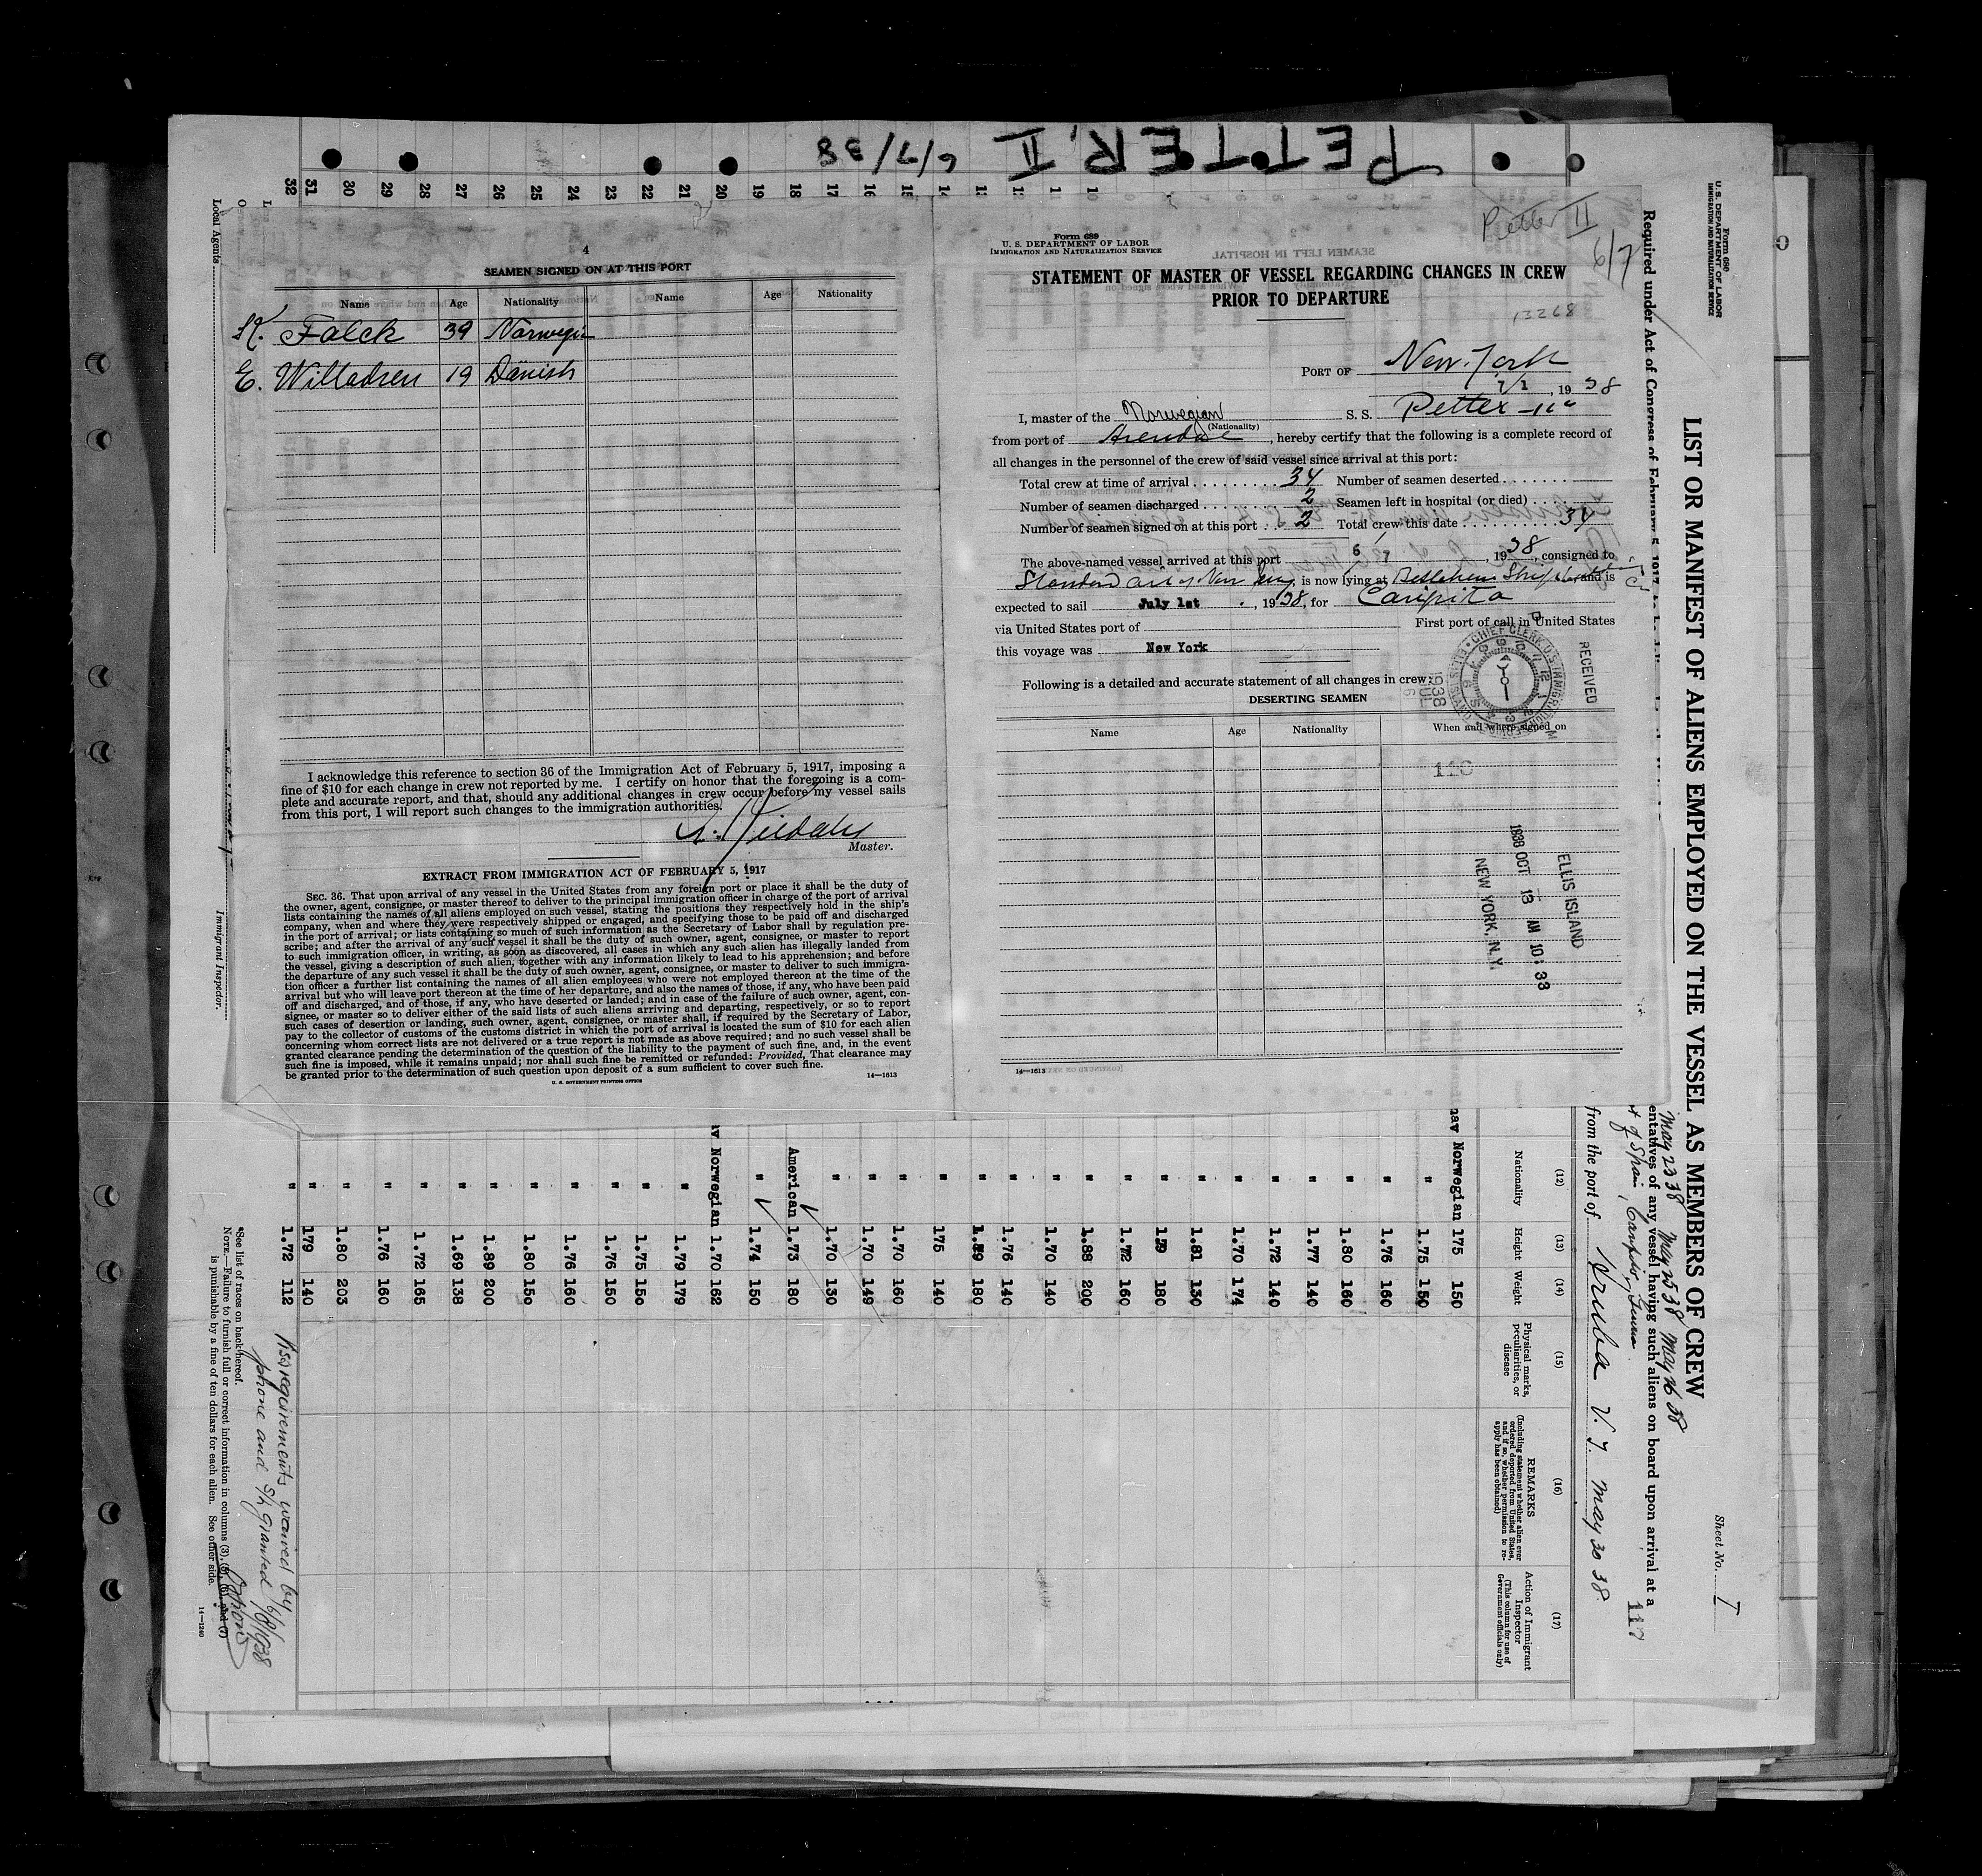 PETTER II
6/7/38
32 31 30 29 28 27 26 25 24 23 22 21 20 19 18 17 16 15 14 12 11 10
Local Agents
Immigrant Inspector.
4
SEAMEN SIGNED ON AT THIS PORT
Name Age Nationality Name Age Nationality
K. Falck 39
E. Willadsen 19 Danish
I acknowledge this reference to section 36 of the Immigration Act of February 5, 1917, imposing a
fine of $10 for each change in crew not reported by me. I certify on honor that the foregoing is a com-
plete and accurate report, and that, should any additional changes in crew occur before my vessel sails
from this port, I will report such changes to the immigration authorities.
Master.
EXTRACT FROM IMMIGRATION ACT OF FEBRUARY 5, 1917
SEC. 36. That upon arrival of any vessel in the United States from any foreign port or place it shall be the duty of
the owner, agent, consignee, or master thereof to deliver to the principal immigration officer in charge of the port of arrival
lists containing the names of all aliens employed on such vessel, stating the positions they respectively hold in the ship's
company, when and where they were respectively shipped or engaged, and specifying those to be paid off and discharged
in the port of arrival; or lists containing so much of such information as the Secretary of Labor shall by regulation pre-
scribe; and after the arrival of any such vessel it shall be the duty of such owner, agent, consignee, or master to report
to such immigration officer, in writing, as soon as discovered, all cases in which any such alien has illegally landed from
the vessel, giving a description of such alien, together with any information likely to lead to his apprehension; and before
the departure of any such vessel it shall be the duty of such owner, agent, consignee, or master to deliver to such immigra-
tion officer a further list containing the names of all alien employees who were not employed thereon at the time of the
arrival but who will leave port thereon at the time of her departure, and also the names of those, if any, who have been paid
off and discharged, and of those, if any, who have deserted or landed; and in case of the failure of such owner, agent, con-
signee, or master so to deliver either of the said lists of such aliens arriving and departing, respectively, or so to report
such cases of desertion or landing, such owner, agent, consignee, or master shall, if required by the Secretary of Labor,
pay to the collector of customs of the customs district in which the port of arrival is located the sum of $10 for each alien
concerning whom correct lists are not delivered or a true report is not made as above required; and no such vessel shall be
granted clearance pending the determination of the question of the liability to the payment of such fine, and, in the event
such fine is imposed, while it remains unpaid; nor shall such fine be remitted or refunded: Provided, That clearance may
be granted prior to the determination of such question upon deposit of a sum sufficient to cover such fine.
U. S. GOVERNMENT PRINTING OFFICE
14—1613
Petter II
6/7
Form 689
U. S. DEPARTMENT OF LABOR
IMMIGRATION AND NATURALIZATION SERVICE
STATEMENT OF MASTER OF VESSEL REGARDING CHANGES IN CREW
PRIOR TO DEPARTURE
13268
PORT OF New York
7/1, 1938
I, master of the Norwegian S. S. Petter
(Nationality)
from port of Arendal, hereby certify that the following is a complete record of
all changes in the personnel of the crew of said vessel since arrival at this port:
Total crew at time of arrival 34 Number of seamen deserted
Number of seamen discharged 2 Seamen left in hospital (or died)
Number of seamen signed on at this port 2 Total crew this date 34
The above-named vessel arrived at this port 6/7, 1938, consigned to
Standard Oil of New Jersey is now lying at and is
expected to sail July 1st, 1938, for Caripito
via United States port of First port of call in United States
this voyage was New York
Following is a detailed and accurate statement of all changes in crew:
DESERTING SEAMEN
Name Age Nationality When and where signed on
CHIEF CLERK, U.S. IMMIGRATION
RECEIVED
116
ELLIS ISLAND
1938 OCT 13 AM 10:33
NEW YORK, N.Y.
14—1613
Form 680
U. S. DEPARTMENT OF LABOR
IMMIGRATION AND NATURALIZATION SERVICE
Sheet No. 1
LIST OR MANIFEST OF ALIENS EMPLOYED ON THE VESSEL AS MEMBERS OF CREW
Required under Act of Congress of February 5, 1917
entatives of any vessel having such aliens on board upon arrival at a
May 23 38 May 25 38 May 26 38
of Spain, Caripito,
117
from the port of Aruba May 30 38
(12) (13) (14) (15) (16) (17)
Nationality
Height
Weight
Physical marks, peculiarities, or disease
REMARKS
(Including statement whether alien ever ordered deported from United States, and if so, whether permission to re-apply has been obtained)
Action of Immigrant Inspector
(This column for use of Government officials only)
nav Norwegian 175 150
" 1.75 150
" 1.76 160
" 1.80 160
" 1.77 140
" 1.72 140
" 1.70 174
" 1.81 130
" 179 180
" 1.72 160
" 1.88 200
" 1.70 140
" 1.76 140
" 1.89 180
" 175 140
" 1.70 160
" 1.70 149
" 1.70 130
American 1.73 180
" 1.74 150
av Norwegian 1.70 162
" 1.79 179
" 1.75 150
" 1.76 150
" 1.76 160
" 1.80 150
" 1.89 200
" 1.69 138
" 1.72 165
" 1.76 160
" 1.80 203
" 179 140
" 1.72 112
requirements waived by
phone and S/L granted 6/8/1938
*See list of races on back hereof.
NOTE.—Failure to furnish full or correct information in columns (3), (5), (6), and (7)
is punishable by a fine of ten dollars for each alien. See other side.
14—1240